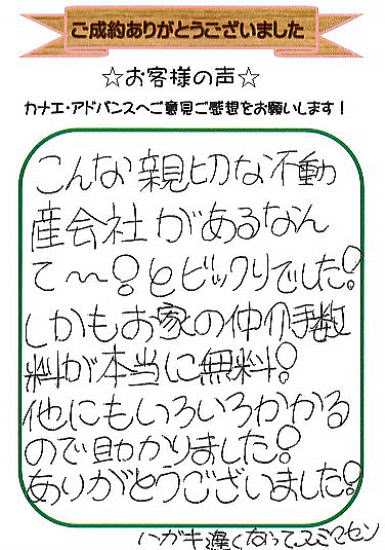 ご成約ありがとうございました
☆お客様の声☆
カナエ・アドバンスへご意見ご感想をお願いします！
こんな親切な不動
産会社があるなん
て〜！とビックリでした！
しかもお家の仲介手数
料が本当に無料！
他にもいろいろかかる
ので助かりました！
ありがとうございました！
ハガキ遅くなってスミマセン